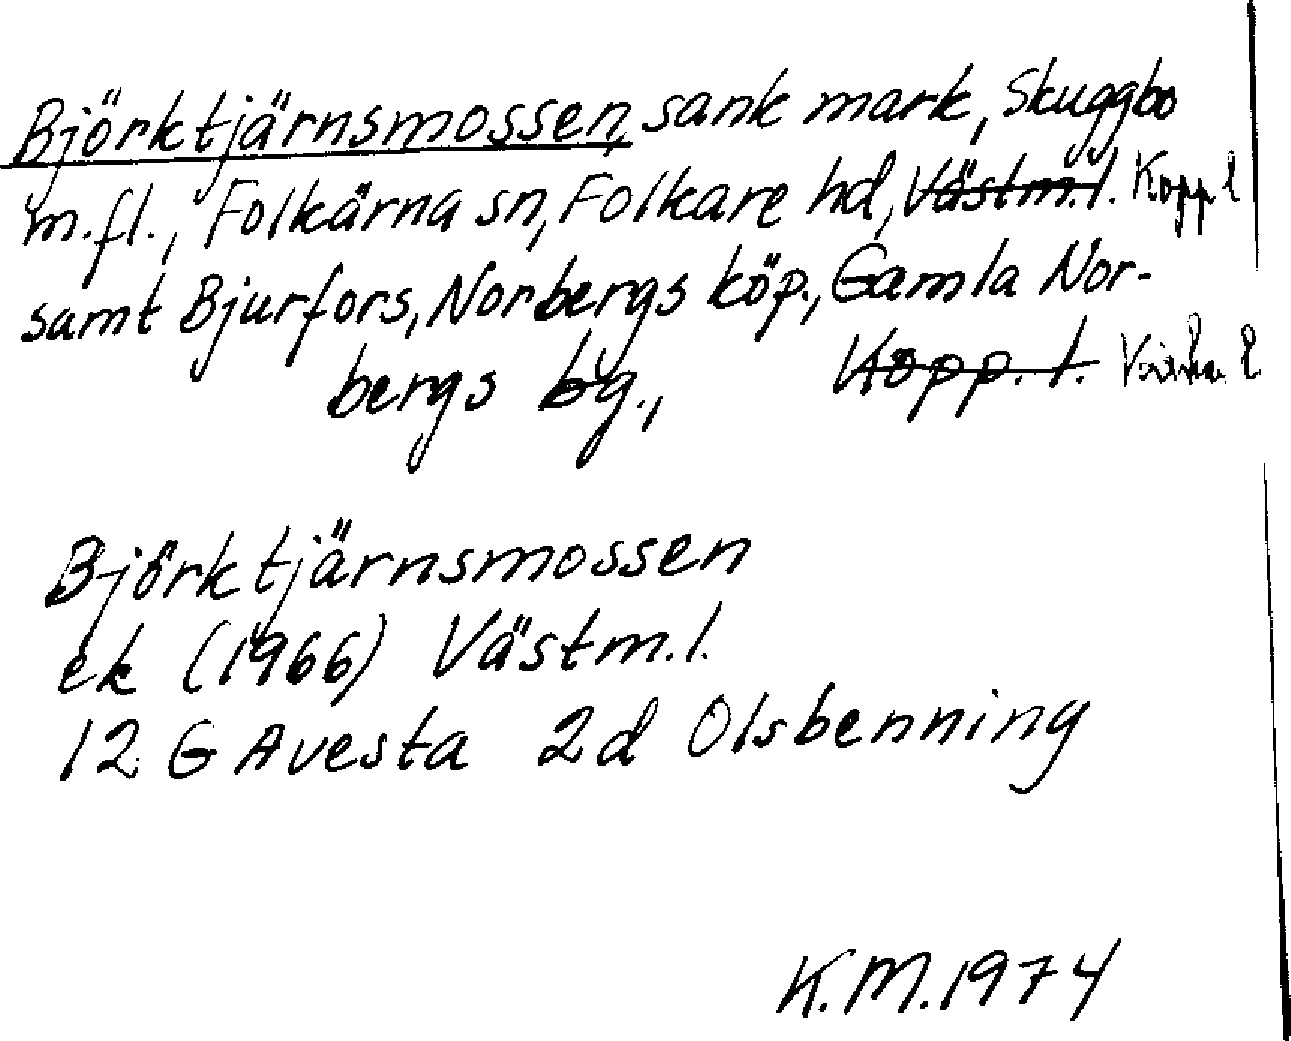 Björktjärnsmossen, sank mark, Skuggbo
m.fl., Folkärna sn, Folkare hd, Västm.l. Kopp l
samt Bjurfors, Norbergs köp., Gamla Nor-
bergs bg., Kopp. l.
Björktjärnsmossen
ek (1966) Västm.l.
12 G Avesta 2d Olsbenning
K.M.1974